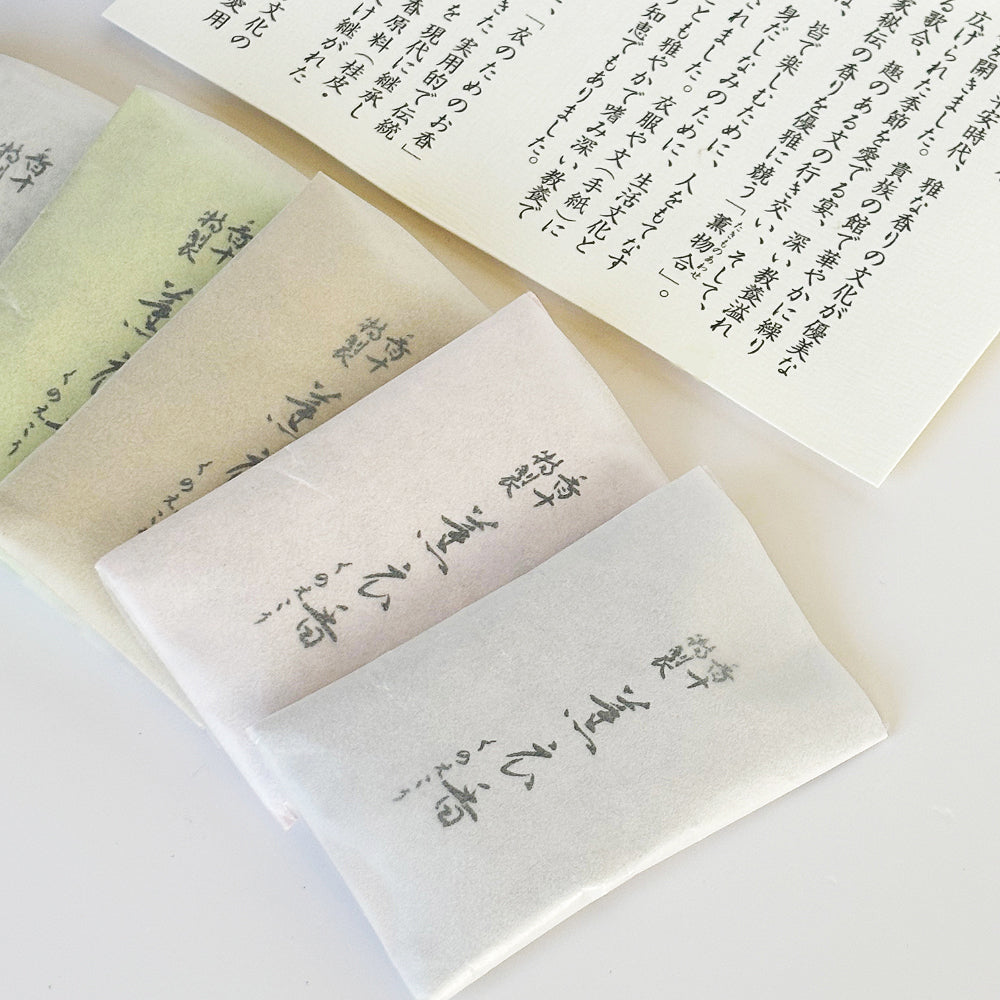 平安時代、雅な香りの文化が優美な
開きました。貴族の館で華やかに繰り
広げられた季節を愛でる宴、深い教養溢れ
る歌合、趣のある文の行き交い、そして、
家秘伝の香りを優雅に競う「薫物合」。
たきものあわせ
は、皆で楽しむために、人をもてなす
身だしなみのために、生活文化と
されました。衣服や文(手紙)に
ことも雅やかで嗜み深い教養で
知恵でもありました。
、「衣のためのお香」
きた 実用的で伝統
を現代に継承し
香原料(桂皮・
け継がれた
文化の
愛用
香十
特製
香十
特製
薫衣
くのえこう
香十
特製
薫衣
くのえこ
香十
特製
薫衣香
くのえこう
香十
特製
薫衣香
くのえこう